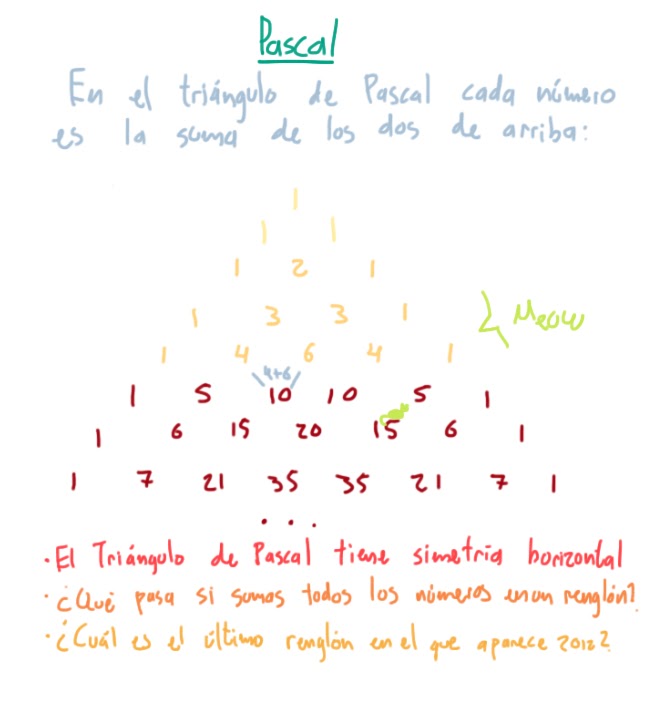 Pascal
En el triángulo de Pascal cada número
es la suma de los dos de arriba:
1
1 1
1 2 1
1 3 3 1
Meow
1 4 6 4 1
4+6
1 5 10 10 5 1
1 6 15 20 15 6 1
1 7 21 35 35 21 7 1
...
· El Triángulo de Pascal tiene simetria horizontal
· ¿Qué pasa si sumas todos los números en un renglón?
· ¿Cuál es el último renglón en el que aparece 2012?